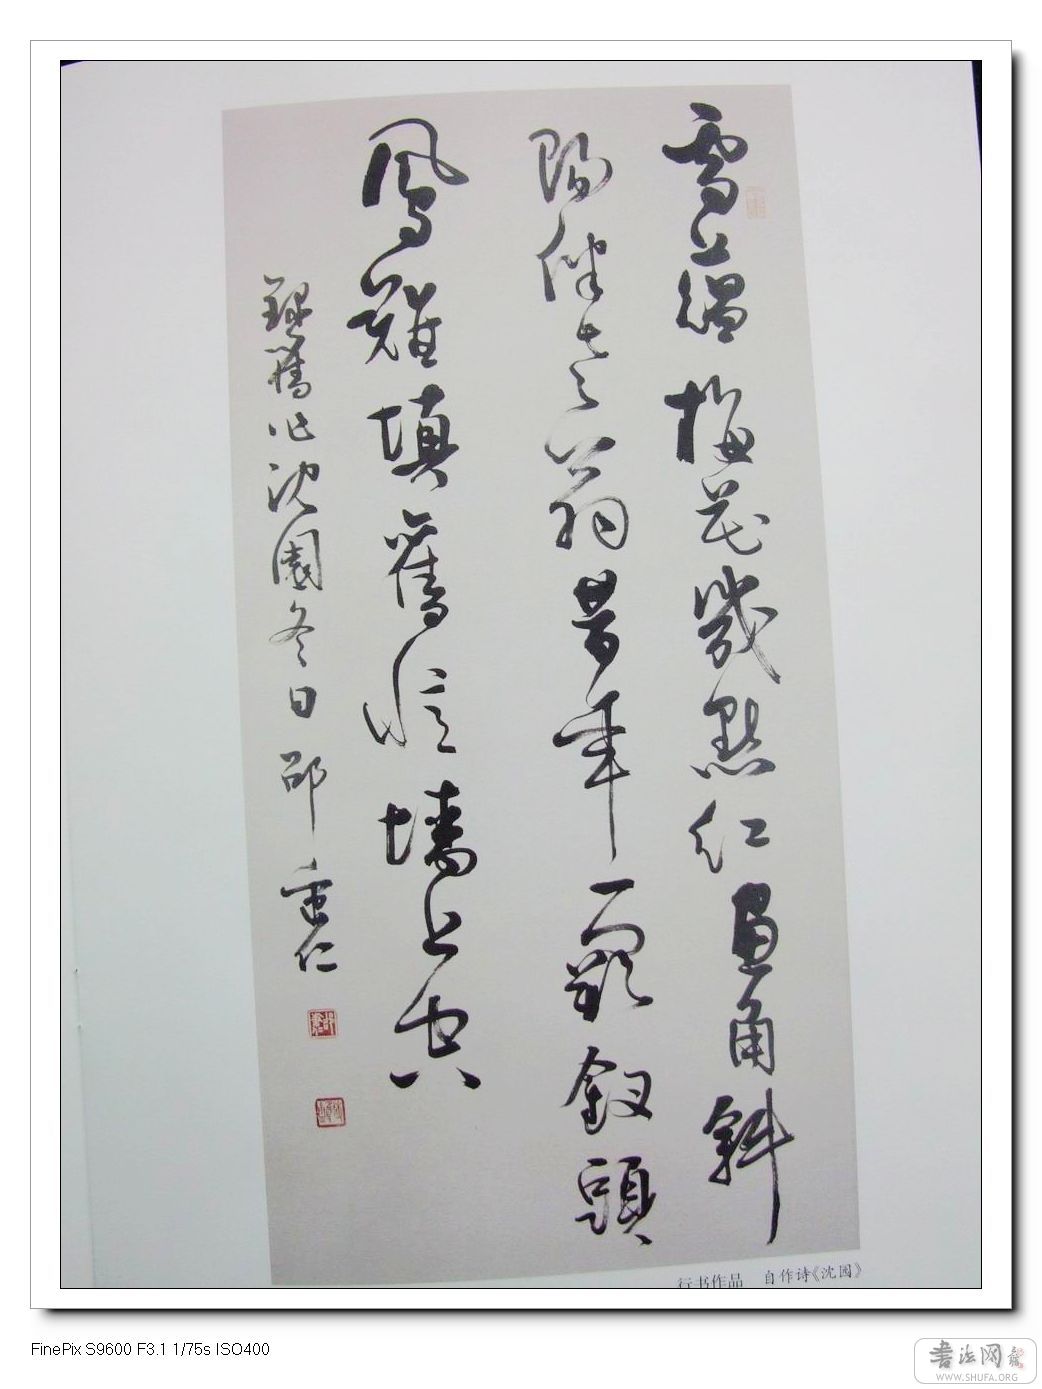 雪蘊梅花幾點紅畫角斜
陽伴老翁昔年一闋釵頭
鳳難填舊憶墻上空
録舊作沈園冬日邵秉仁
行书作品 自作诗《沈园》
FinePix S9600 F3.1 1/75s ISO400
书法网
WWW.SHUFA.ORG